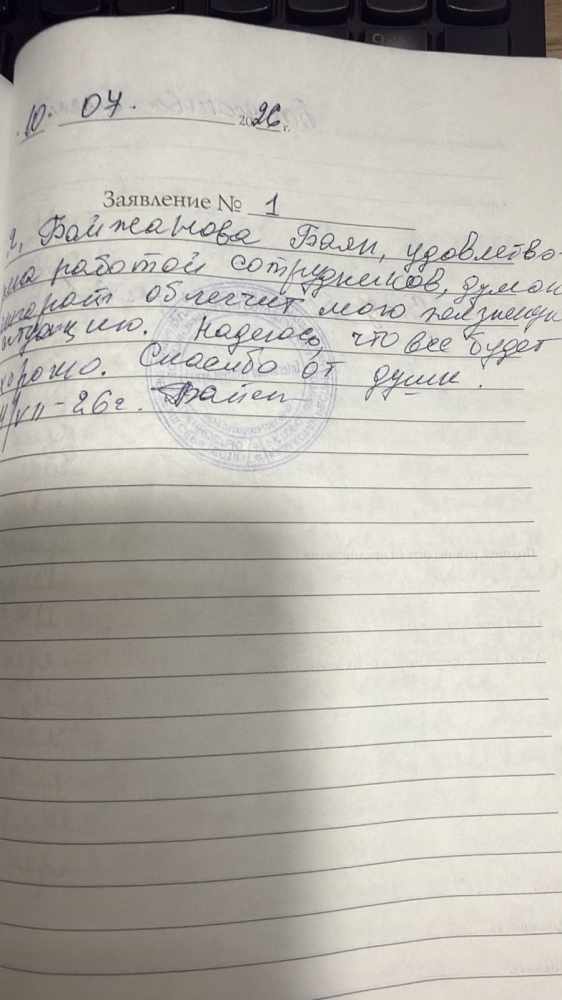 10. 07. 2026 г.
Заявление № 1
Я, Байжанова Баян, удовлетво-
на работой сотрудников, думаю
облегчит мою жизнен
итуацию. Надеюсь, что все будет
хорошо. Спасибо от души.
VII-26г.